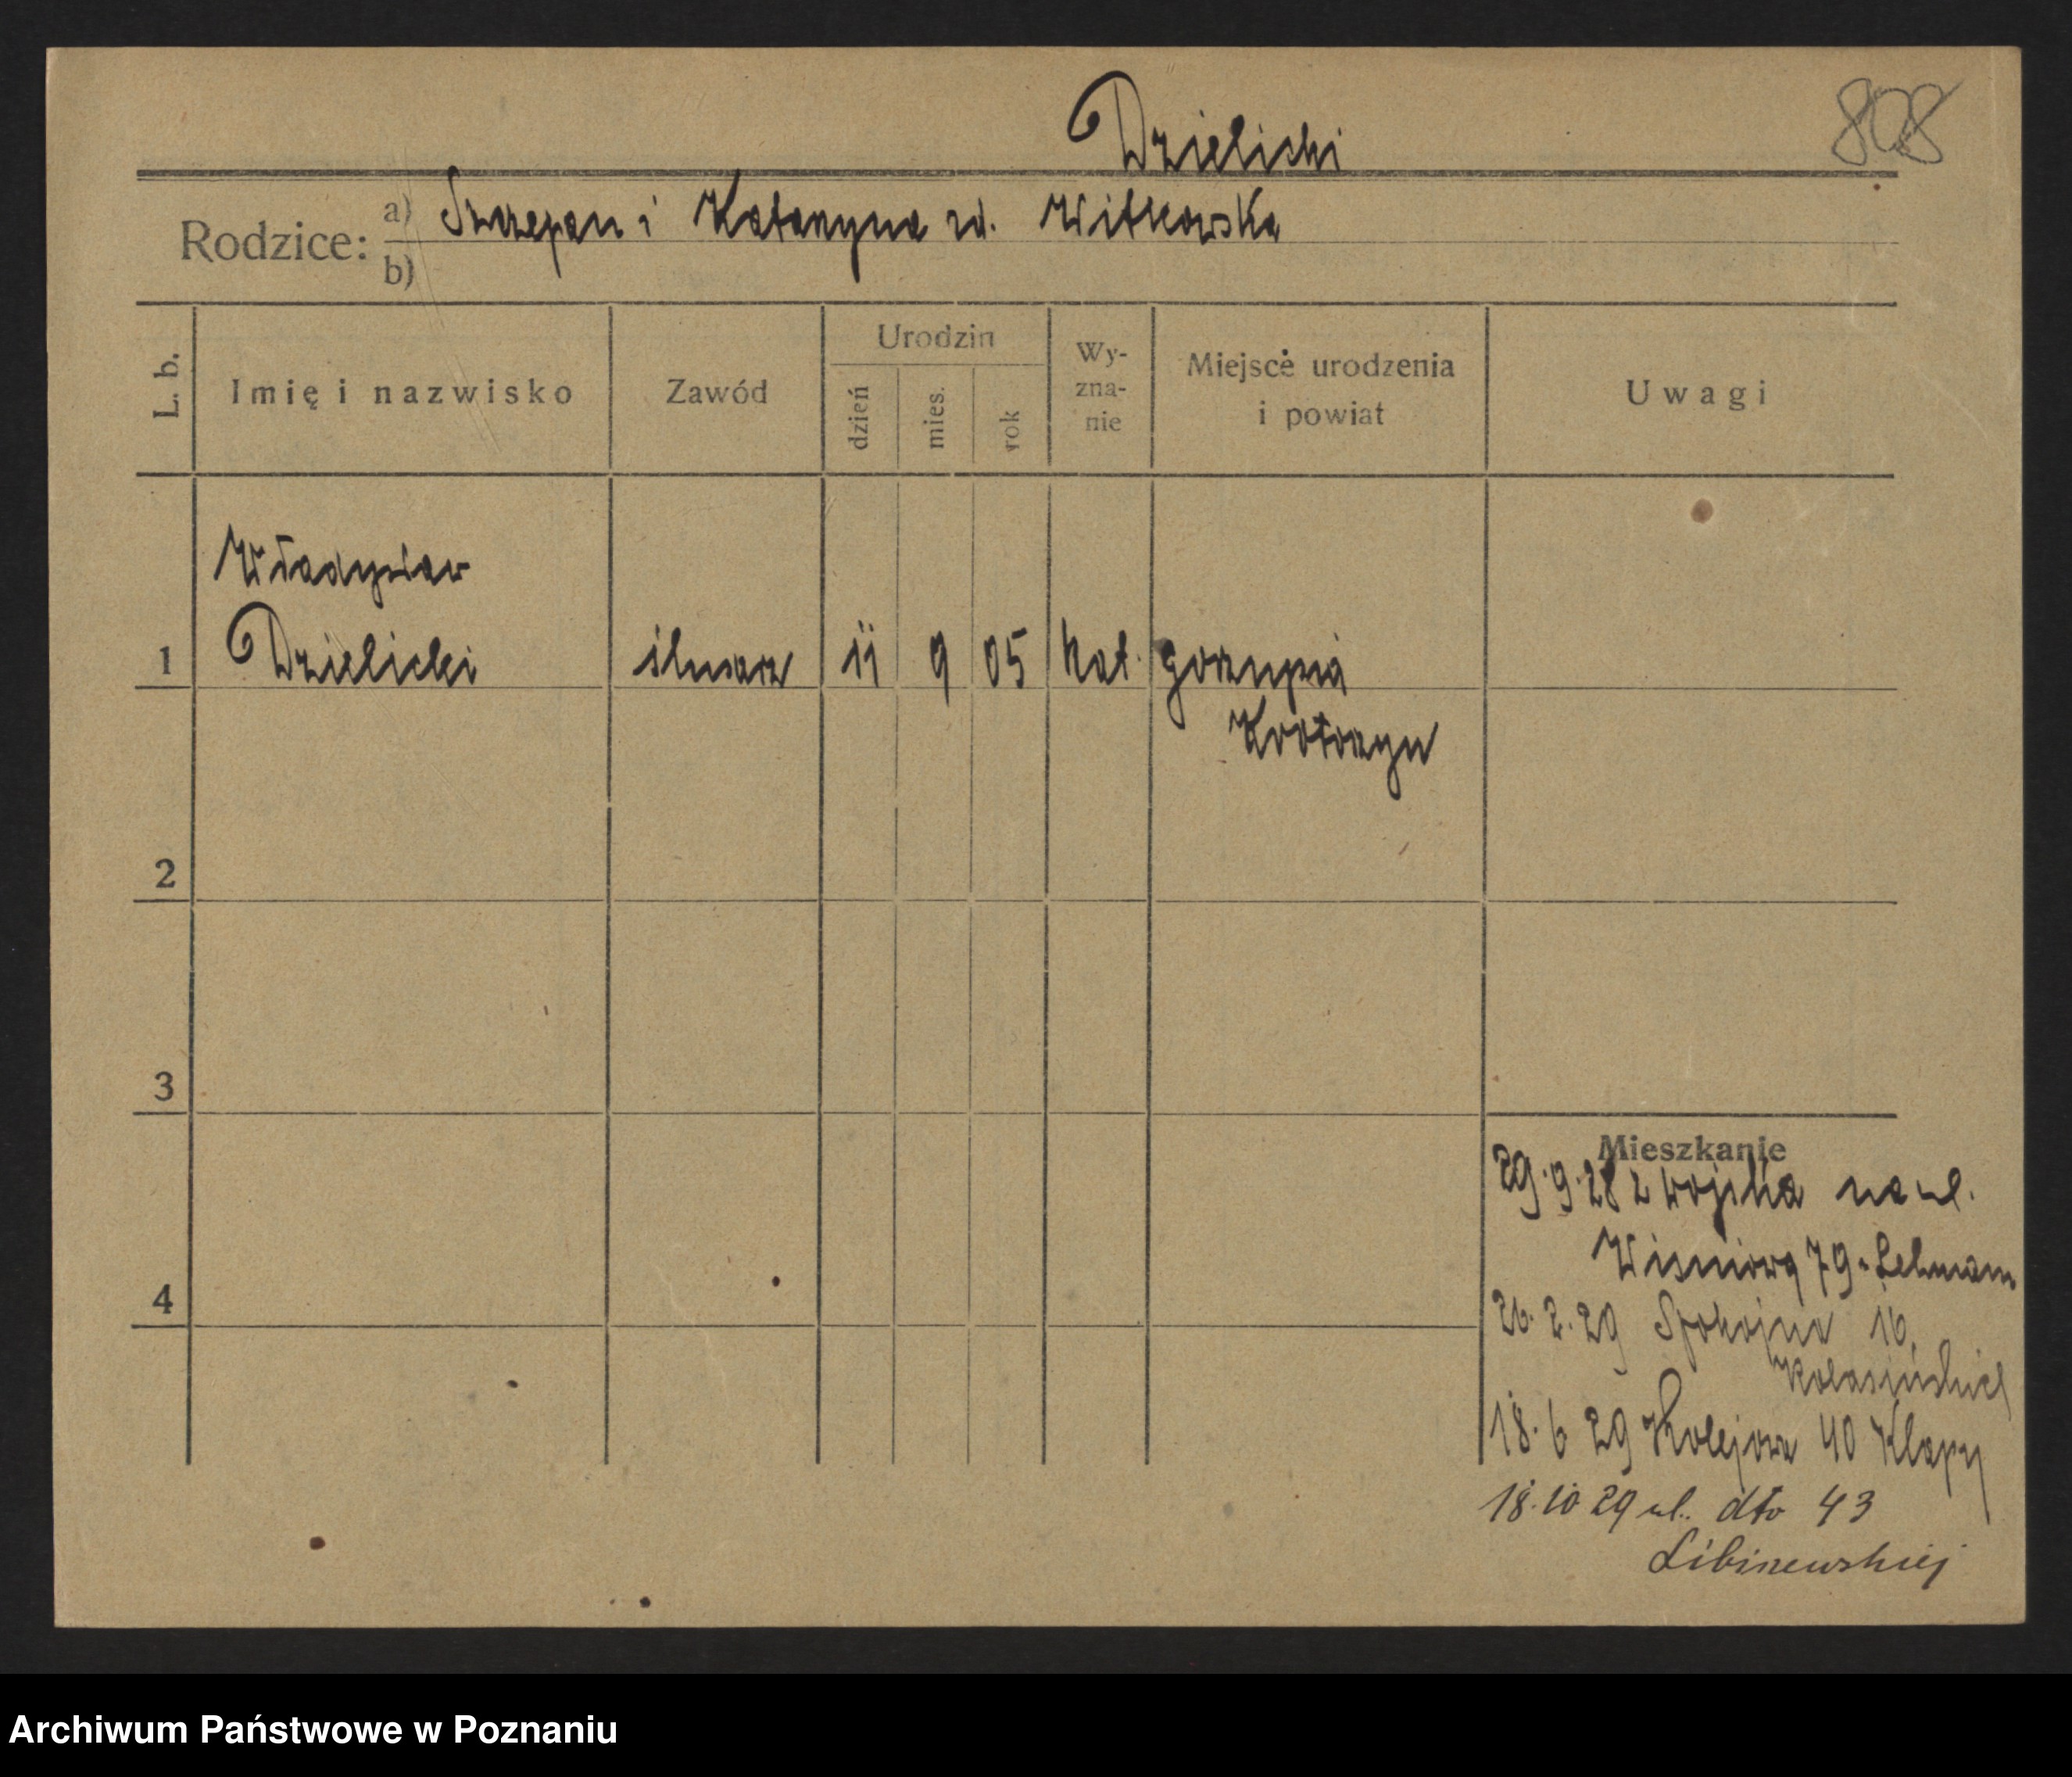 Dzielicki
808
Rodzice: a) Szczepan i Katarzyna rd. Witkowska
b)
L. b.
Imię i nazwisko
Zawód
Urodzin
dzień
mies.
rok
Wy-
zna-
nie
Miejsce urodzenia
i powiat
Uwagi
Władysław
1 Dzielicki ślusarz 11 9 05 kat. Gorzupia
Krotoszyn
2
3
4
Mieszkanie
29.9.28 z wojska na ul.
Wisniowa 79
26.2.29 Spokojna 16
18.6 29 Kolejowa 40 Klapy
18.10 29 ul. dto 43
Archiwum Państwowe w Poznaniu